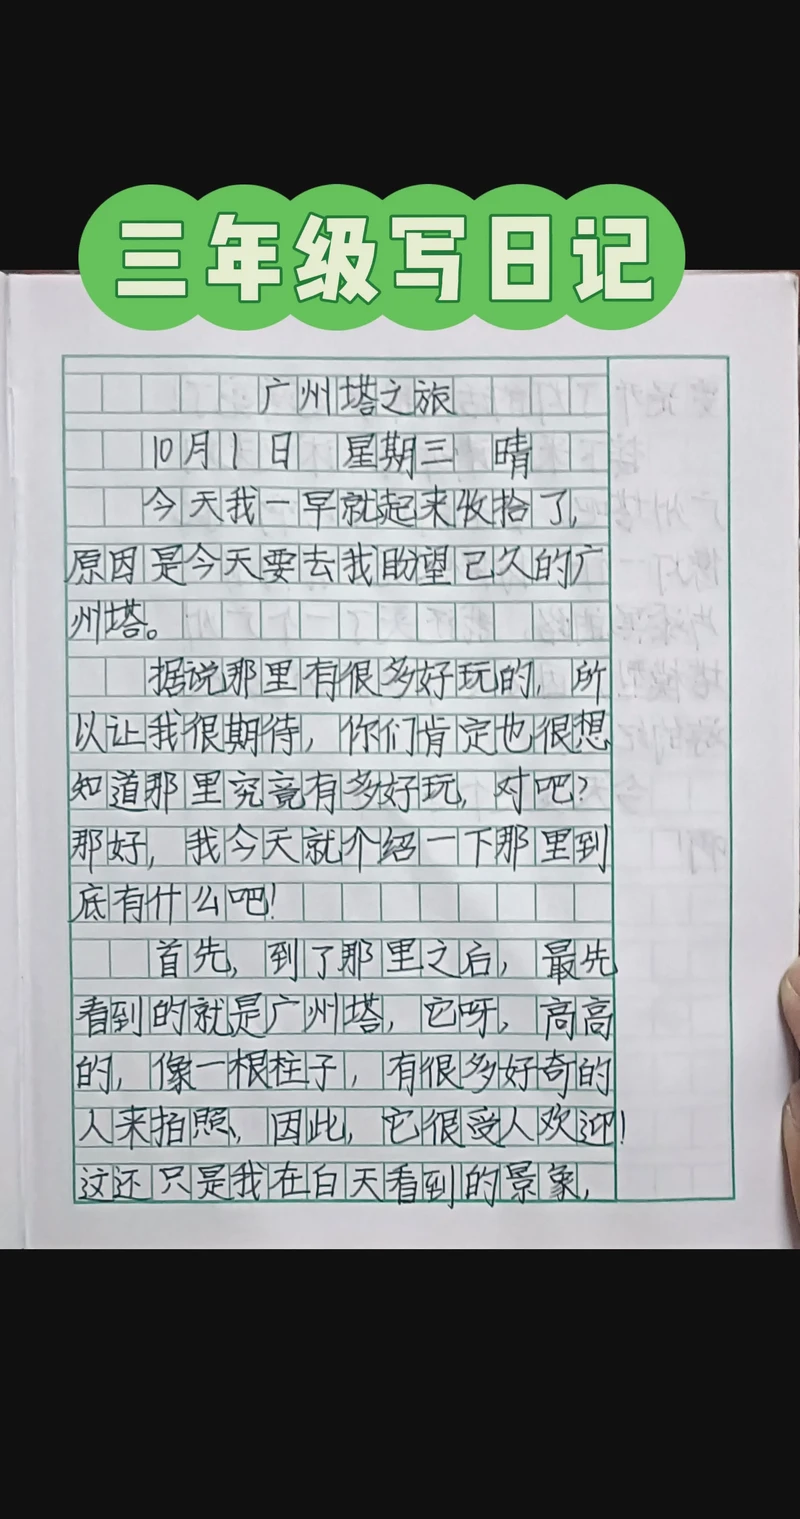 三年级写日记
广州塔之旅
10月1日 星期三 晴
今天我一早就起来收拾了,
原因是今天要去我盼望已久的广
州塔。
据说那里有很多好玩的,所
以让我很期待,你们肯定也很想
知道那里究竟有多好玩,对吧?
那好,我今天就介绍一下那里到
底有什么吧!
首先,到了那里之后,最先
看到的就是广州塔,它呀,高高
的,像一根柱子,有很多好奇的
人来拍照,因此,它很受人欢迎!
这还只是我在白天看到的景象,